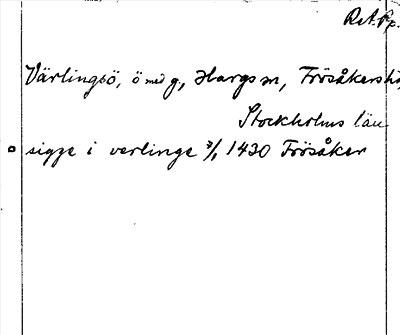 RA. Pp.
Värlingsö, ö med g, Hargs sn, Frösåkers hd,
Stockholms län
sigge i verlinge 3/1 1430 Frösåker